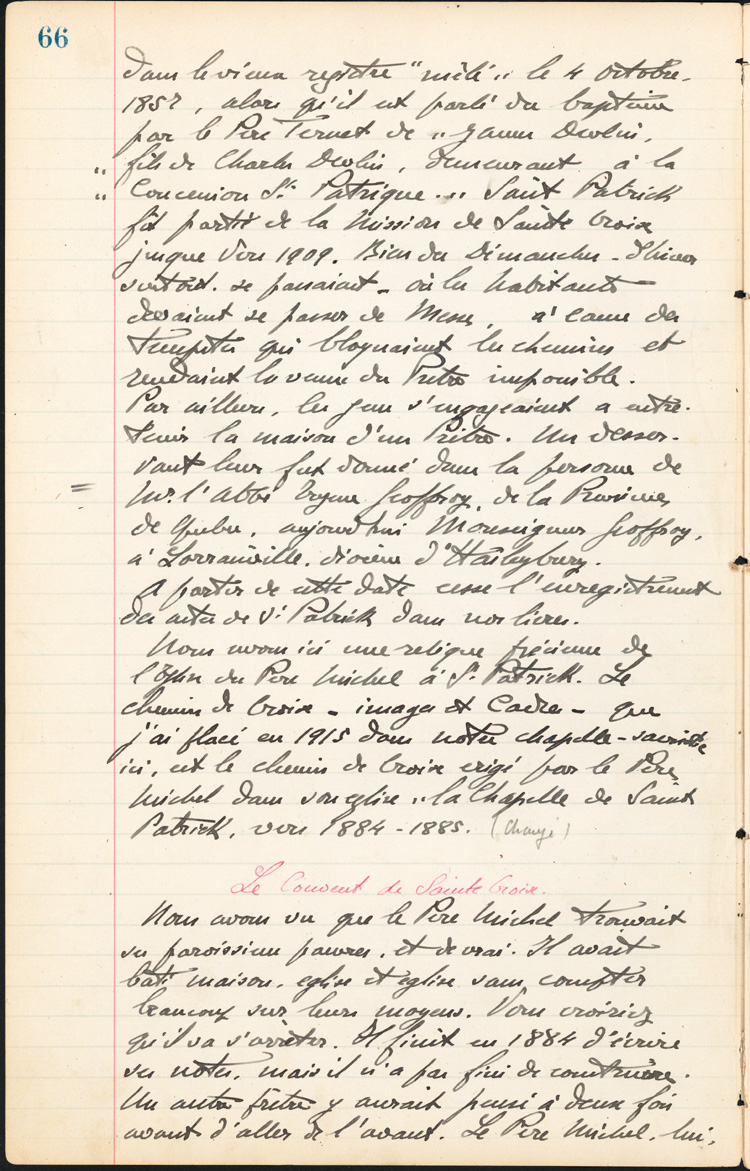 66
dans le vieux registre "mêlé" le 4 Octobre
1857, alors qu'il est parlé du baptême
par le Père Ternet de "James Devlin,
" fils de Charles Devlin, demeurant à la
" Concession St. Patrique." Saint Patrick
fit partie de la Mission de Sainte Croix
jusque vers 1909. Bien des Dimanches - d'hiver
surtout. se passaient - où les habitants
devaient se passer de Messe, à cause des
tempêtes qui bloquaient les chemins et
rendaient la venue du Prêtre impossible.
Par ailleurs, les gens s'engageaient a entre-
tenir la maison d'un Prêtre. Un desser-
vant leur fut donné dans la personne de
= Mr. l'Abbé Geoffroy, de la Province
de Québec, aujourd'hui Monseigneur Geoffroy,
à Lorrainville, diocèse d'Haileybury.
A partir de cette date cesse l'enregistrement
des actes de St Patrick dans nos livres.
Nous avons ici une relique précieuse de
l'Eglise du Père Michel à St. Patrick. Le
chemin de Croix - images et Cadres - que
j'ai placé en 1915 dans notre chapelle-sacristie
ici, est le chemin de Croix erigé par le Père
Michel dans son eglise "la Chapelle de Saint
Patrick, vers 1884-1885. (Changé)
Le Couvent de Sainte Croix.
Nous avons vu que le Père Michel trouvait
ses paroissiens pauvres, et de vrai. Il avait
bâti maison, eglise et eglise sans compter
beaucoup sur leurs moyens. Vous croiriez
qu'il va s'arrêter. Il finit en 1884 d'écrire
ses notes, mais il n'a pas fini de construire.
Un autre prêtre y aurait pensé à deux fois
avant d'aller de l'avant. Le Père Michel, lui,